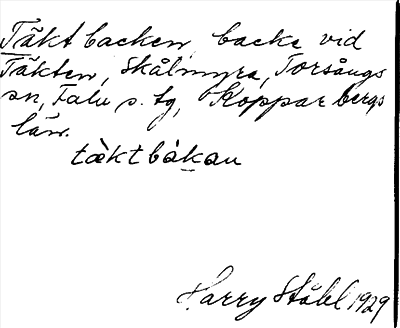 Täktbacken, backe vid
Täkten, Skålmyra, Torsångs
sn, Falu s. tg, Kopparbergs
län.
tàktbákan
Harry Ståhl 1929